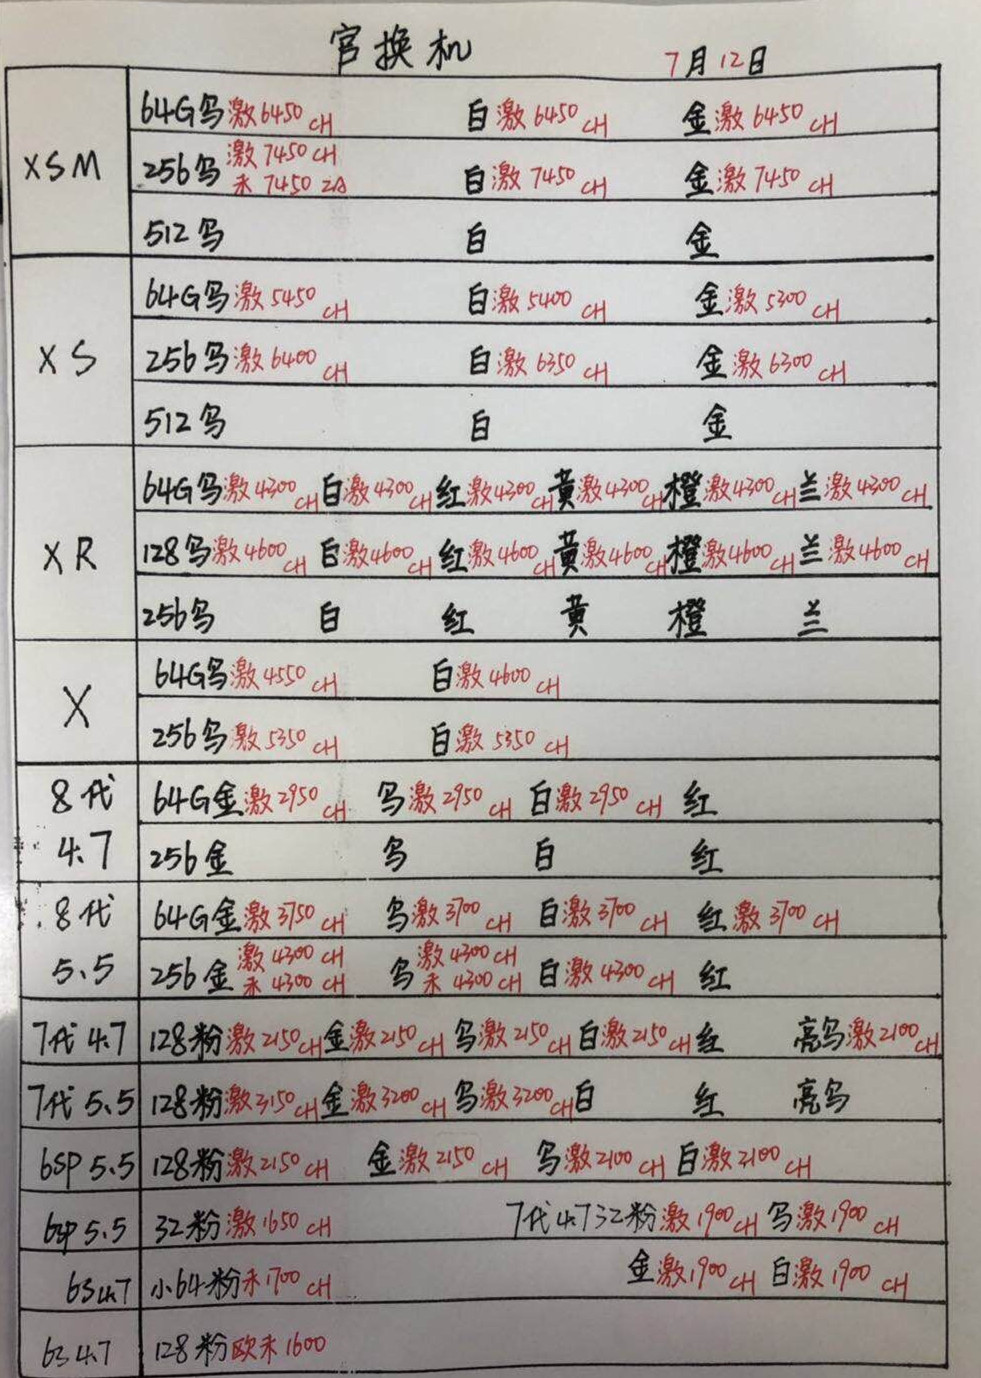 官换机 7月12日
XSM
64G乌激6450 CH 白激6450 CH 金激6450 CH
256乌激7450 CH 白激7450 CH 金激7450 CH
未7450 ZA
512乌 白 金
XS
64G乌激5450 CH 白激5400 CH 金激5300 CH
256乌激6400 CH 白激6350 CH 金激6300 CH
512乌 白 金
XR
64G乌激4300 CH 白激4300 CH 红激4300 CH 黄激4300 CH 橙激4300 CH 兰激4300 CH
128乌激4600 CH 白激4600 CH 红激4600 CH 黄激4600 CH 橙激4600 CH 兰激4600 CH
256乌 白 红 黄 橙 兰
X
64G乌激4550 CH 白激4600 CH
256乌激5350 CH 白激5350 CH
8代
4.7
64G金激2950 CH 乌激2950 CH 白激2950 CH 红
256金 乌 白 红
8代
5.5
64G金激3750 CH 乌激3700 CH 白激3700 CH 红激3700 CH
256金激4300 CH 乌激4300 CH 白激4300 CH 红
未4300 CH 未4300 CH
7代4.7 128粉激2150 CH 金激2150 CH 乌激2150 CH 白激2150 CH 红 亮乌激2100 CH
7代5.5 128粉激3150 CH 金激3200 CH 乌激3200 CH 白 红 亮乌
6SP 5.5 128粉激2150 CH 金激2150 CH 乌激2100 CH 白激2100 CH
6sp 5.5 32粉激1650 CH 7代4.7 32粉激1900 CH 乌激1900 CH
6S 4.7 小64粉未1700 CH 金激1900 CH 白激1900 CH
6S 4.7 128粉欧未1600